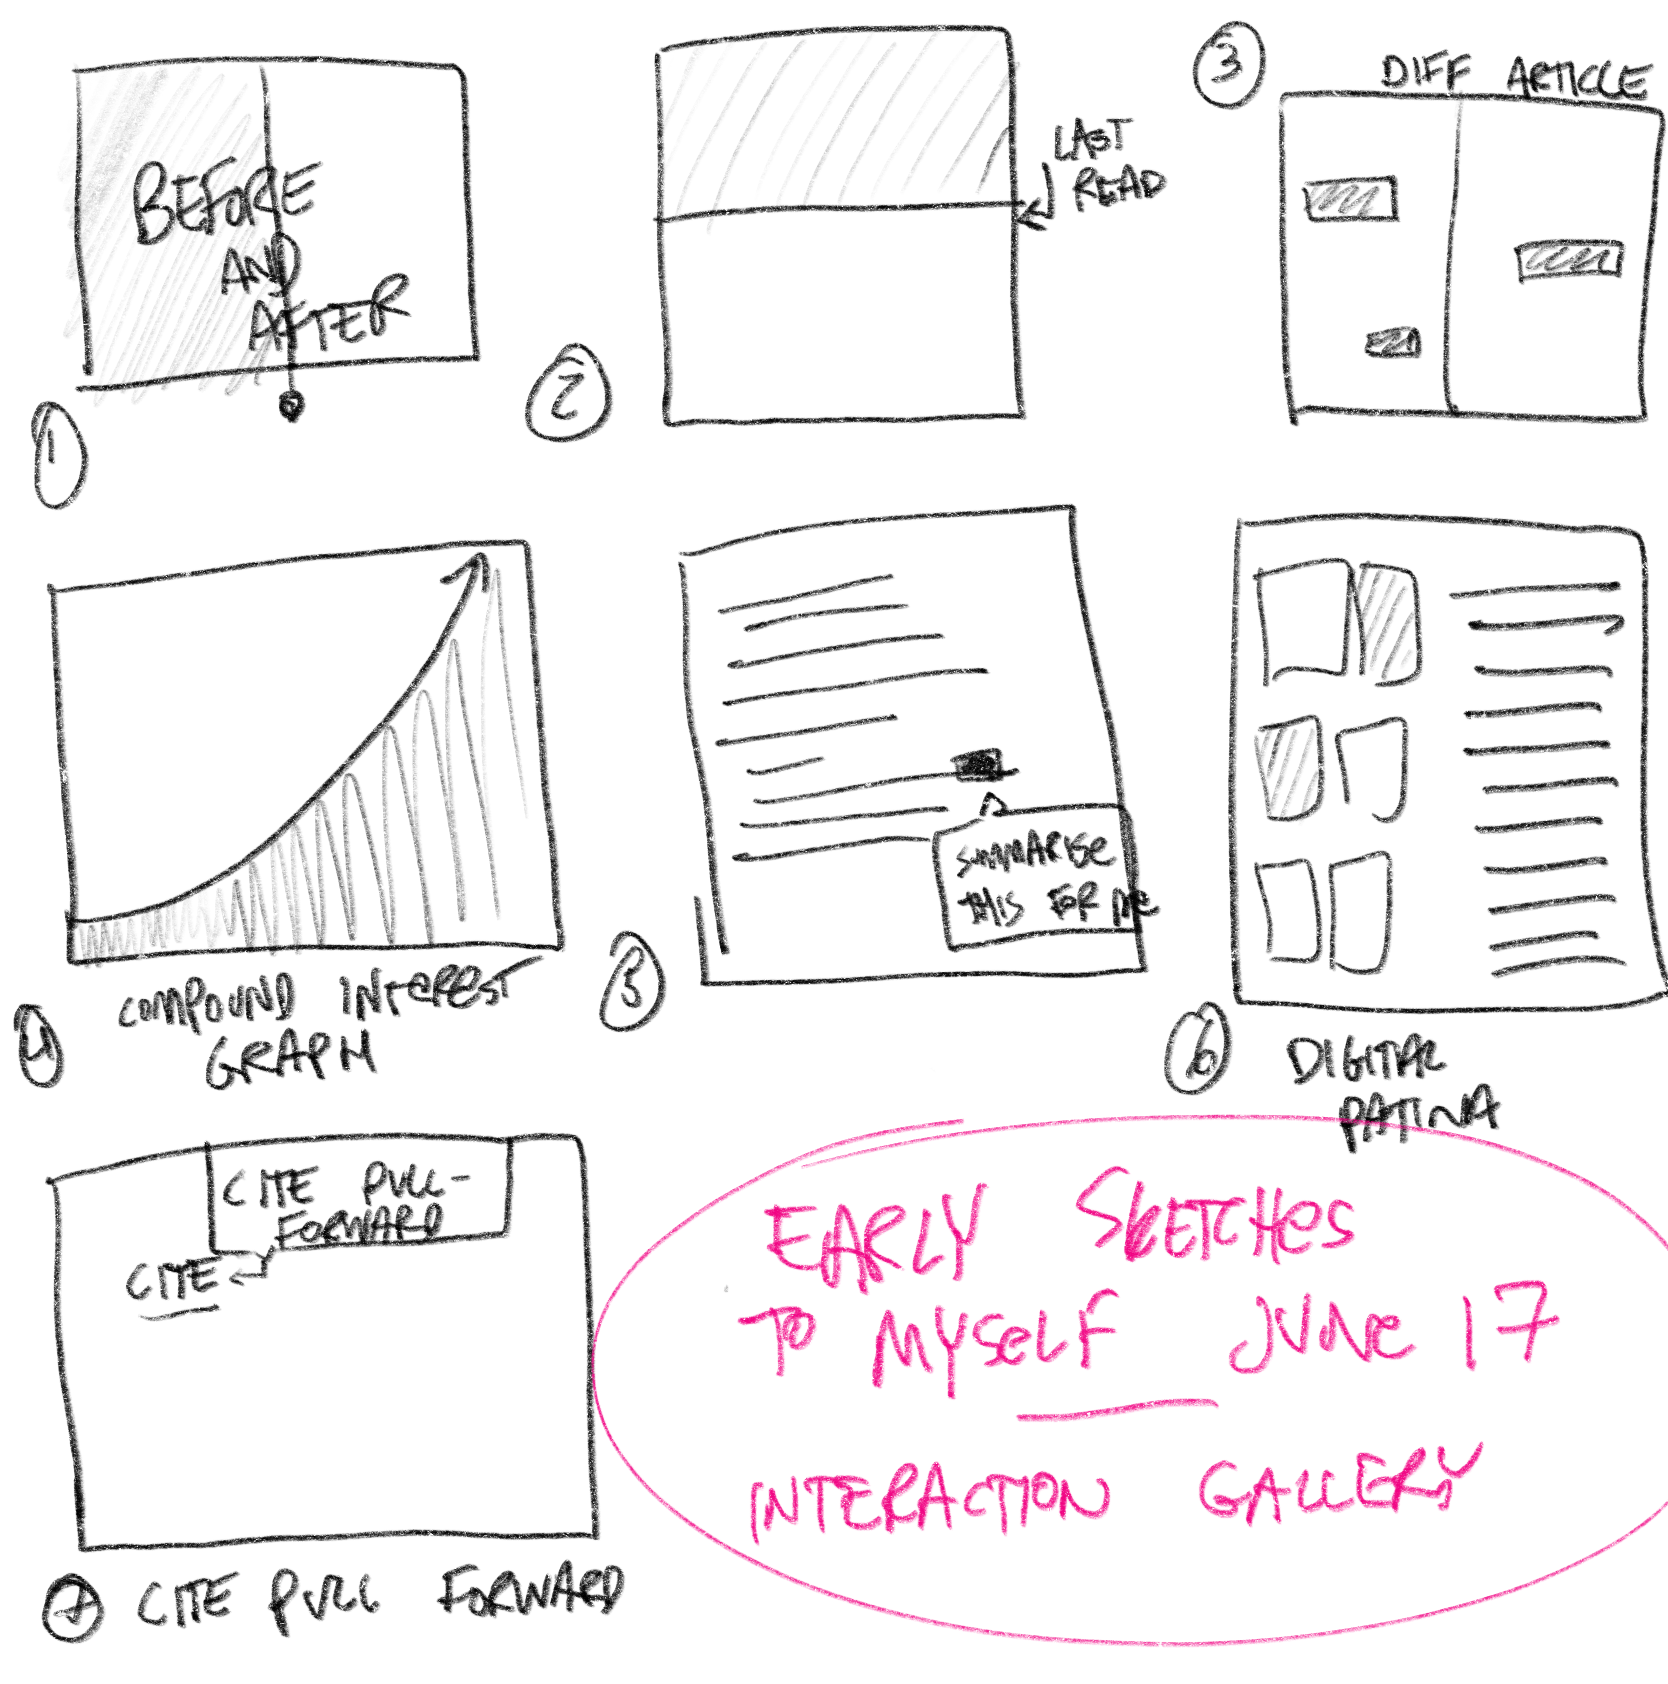 BEFORE
AND
AFTER
1
2
LAST
READ
3
DIFF ARTICLE
4
COMPOUND INTEREST
GRAPH
5
SUMMARISE
THIS FOR ME
6
DIGITAL
PATINA
CITE PULL-
FORWARD
CITE
7 CITE PULL FORWARD
EARLY SKETCHES
TO MYSELF JUNE 17
INTERACTION GALLERY